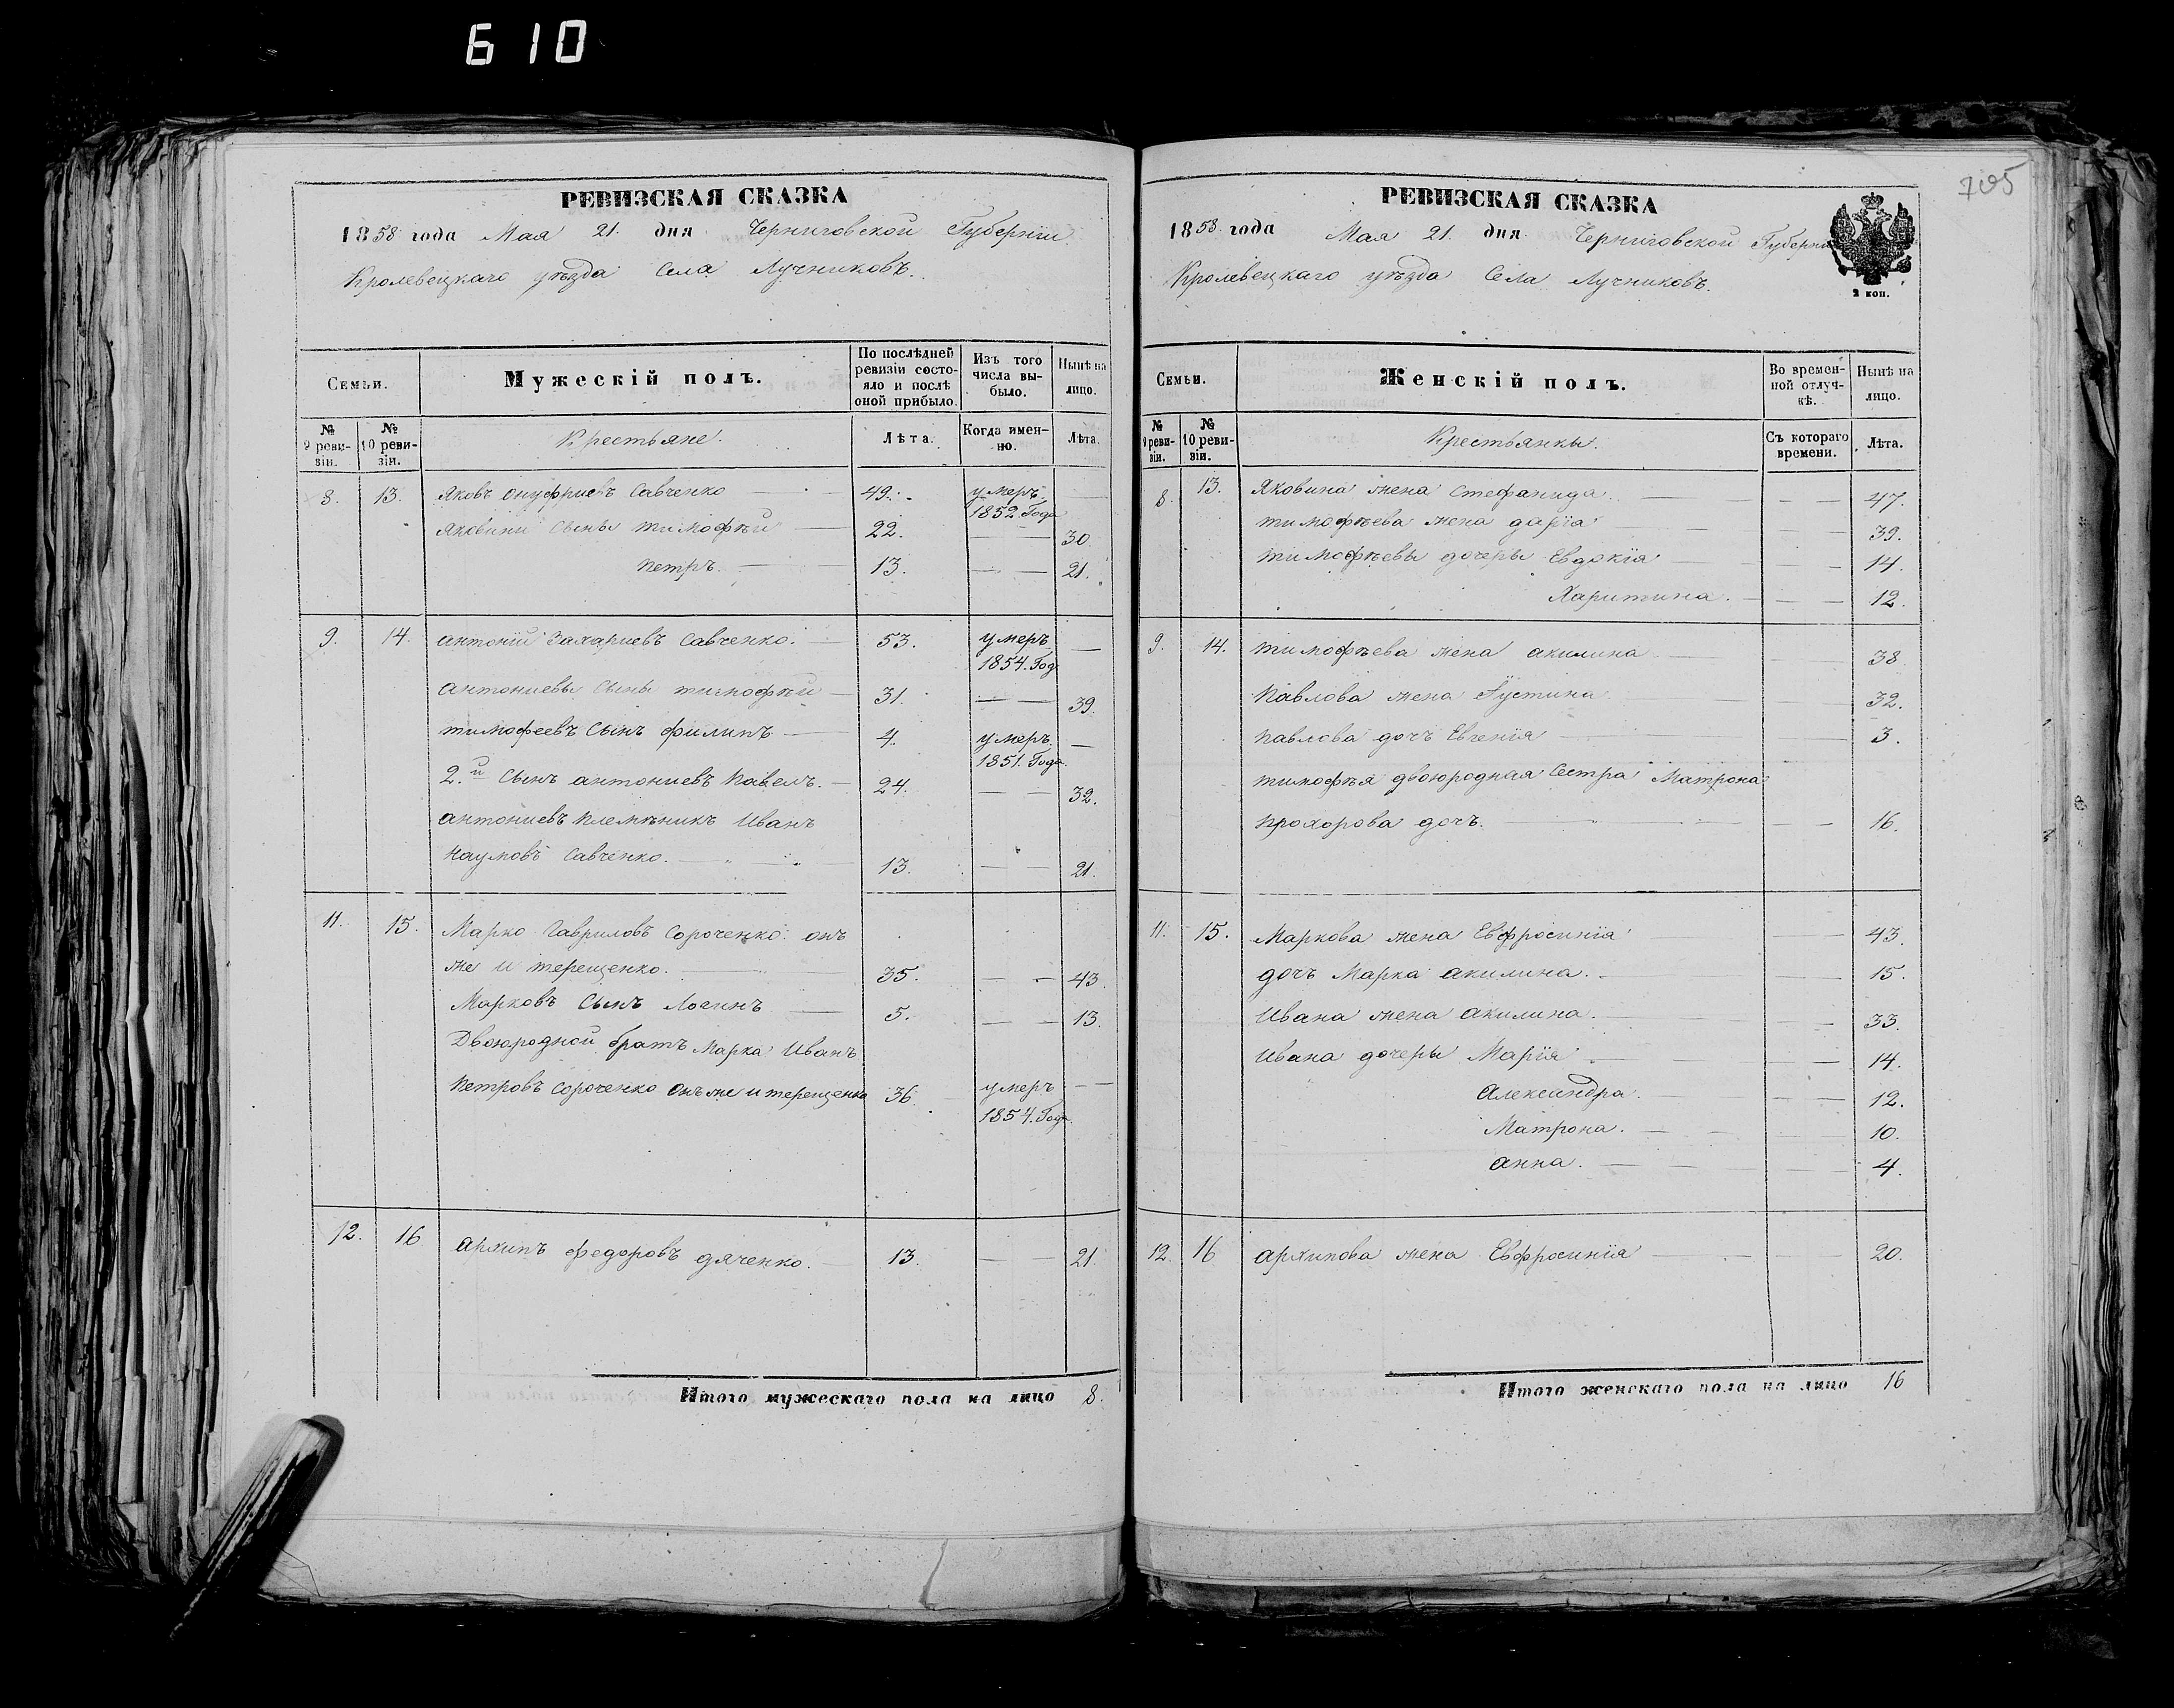 610
РЕВИЗСКАЯ СКАЗКА
1858 года Мая 21. дня Черниговской Губерніи
Кролевецкаго уѣзда Села Лучниковъ.
Семьи.
Мужескій полъ.
По послѣдней ревизіи состояло и послѣ оной прибыло.
Изъ того числа выбыло.
Нынѣ на лицо.
№ 9 ревизіи.
№ 10 ревизіи.
Крестьяне.
Лѣта.
Когда именно.
Лѣта.
8. 13. Яковъ Онуфриевъ Савченко 49. умеръ 1852. Года
Яковини Сыны Тимофѣй 22. 30.
Петръ. 13. 21.
9. 14. Антоній Захариевъ Савченко. 53. умеръ 1854. Год
Антониевы Сыны Тимофѣй 31. 39.
Тимофеевъ Сынъ Филипъ 4. умеръ 1851. Года.
2.й Сынъ Антониевъ Павелъ. 24. 32.
Антониевъ Племѣникъ Иванъ
Наумовъ Савченко. 13. 21.
11. 15. Марко Гавриловъ Сороченко онъ
же и Терещенко. 35. 43.
Марковъ Сынъ Логинъ 5. 13.
Двоюродной братъ Марка Иванъ
Петровъ Сороченко онъ же и Терещенко 36 умеръ 1854. Года.
12. 16 Архипъ Федоровъ Дяченко. 13. 21.
Итого мужескаго пола на лицо 8.
705
РЕВИЗСКАЯ СКАЗКА
1858. года Мая 21. дня Черниговской Губерни
Кролевецкаго уѣзда Села Лучниковъ.
2 коп.
Семьи.
Женскій полъ.
Во временной отлучкѣ.
Нынѣ на лицо.
№ 9 ревизіи.
№ 10 ревизіи.
Крестьянки.
Съ котораго времени.
Лѣта.
8. 13. Яковина жена Стефанида. 47.
Тимофѣева жена Дарія 39.
Тимофѣевы дочеры Евдокія 14.
Харитина. 12.
9. 14. Тимофѣева жена Акилина 38.
Павлова жена Іустина 32.
Павлова дочъ Евгенія 3.
Тимофѣя двоюродная Сестра Матрона
Прохорова дочъ. 16.
11. 15. Маркова жена Евфросинія 43.
дочъ Марка Акилина. 15.
Ивана жена Акилина. 33.
Ивана дочеры Марія 14.
Александра. 12.
Матрона. 10.
Анна. 4.
12. 16 Архипова жена Евфросинія 20.
Итого женскаго пола на лицо 16